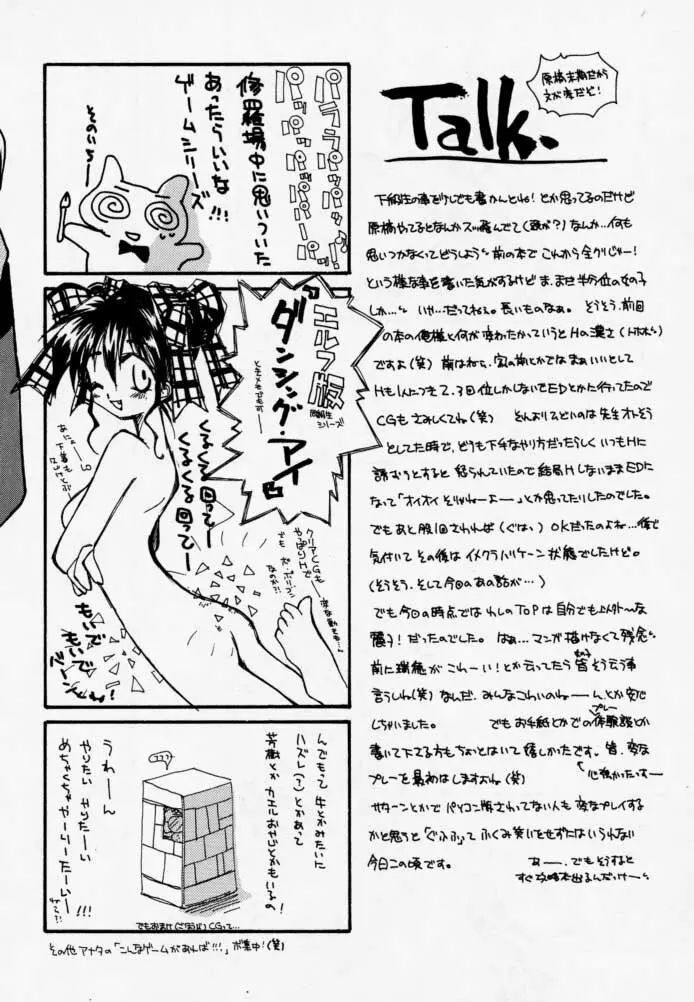 Talk.
原稿末期だから
文が変だど!
下級生の事だけしでも書かんとね!とか思ってるのだけど
原稿やってるとなんかスッ飛んでて(頭が?)なんか…何も
思いつかなくってどうしよう 前の本でこれから全クリじゃー!
という様な事を書いた気がするけど ま、まだ半分位の女の子
しか…
いや…だってねぇ。長いものなぁ。 そうそう、前回
の本の俺様と何が変わったかっていうとHの濃さ(ホホホ)
ですよ(笑)
Hも1人につき2、3回位しかしないでEDとかに行ってたので
CGもさみしくてね(笑)
としてた時で、どうも下手なやり方だったらしく いつもHに
誘おうとすると 怒られていたので結局HしないままEDに
なって「オイオイ そりゃねーよー」とか思ってたりしたのでした。
でもあと
OKだったのよね…後で
気付いて その後はイメクラハリケーン状態でしたけど。
(そうそう、そして今回のあの話が…)
でも今回の時点では わしのTOPは自分でも以外〜な
麗子!だったのでした。 はぁ…マンガ描けなくて残念
前に瑞穂がこわーい!とか云ってたら 皆そう云う事
言うしね(笑) なんだ、みんなこわいのねーん、とか安心
しちゃいました。 でもお手紙とかでのプレー体験談とか
書いて下さる方もちょっとはいて嬉しかったです。皆、変な
プレーを最初はしますよね(笑)
心強かったっすー
サターンとかでパソコン版されてない人も 変なプレイする
かと思うと「ぐふふ」って ふくみ笑いをせずにはいられない
今日この頃です。
あー、でもそうすると
すぐ攻略本出るんだっけー
パララパッパッ
パッパッパパー
修羅場中に思いついた
あったらいいな
ゲームシリーズ!!!
そのいちー
『エルフ版
同級生
シリーズ
ダンシング・アイ』
くるくる回ってー
くるくる回ってー
クリアCGも
やっぱりHで
でも
ポリゴン
なのか?!
もいで
もいで
バーン
んでもって 牛とかみたいに
ハズレ(?)とかあって
芳樹とか カエルおやじとかもいるの!
うわーん
やりたい やりたーい
めちゃくちゃ やーりーたーいー!!!
ココココ
その他 アナタの「こんなゲームがあれば!!!」ボ集中!(笑)